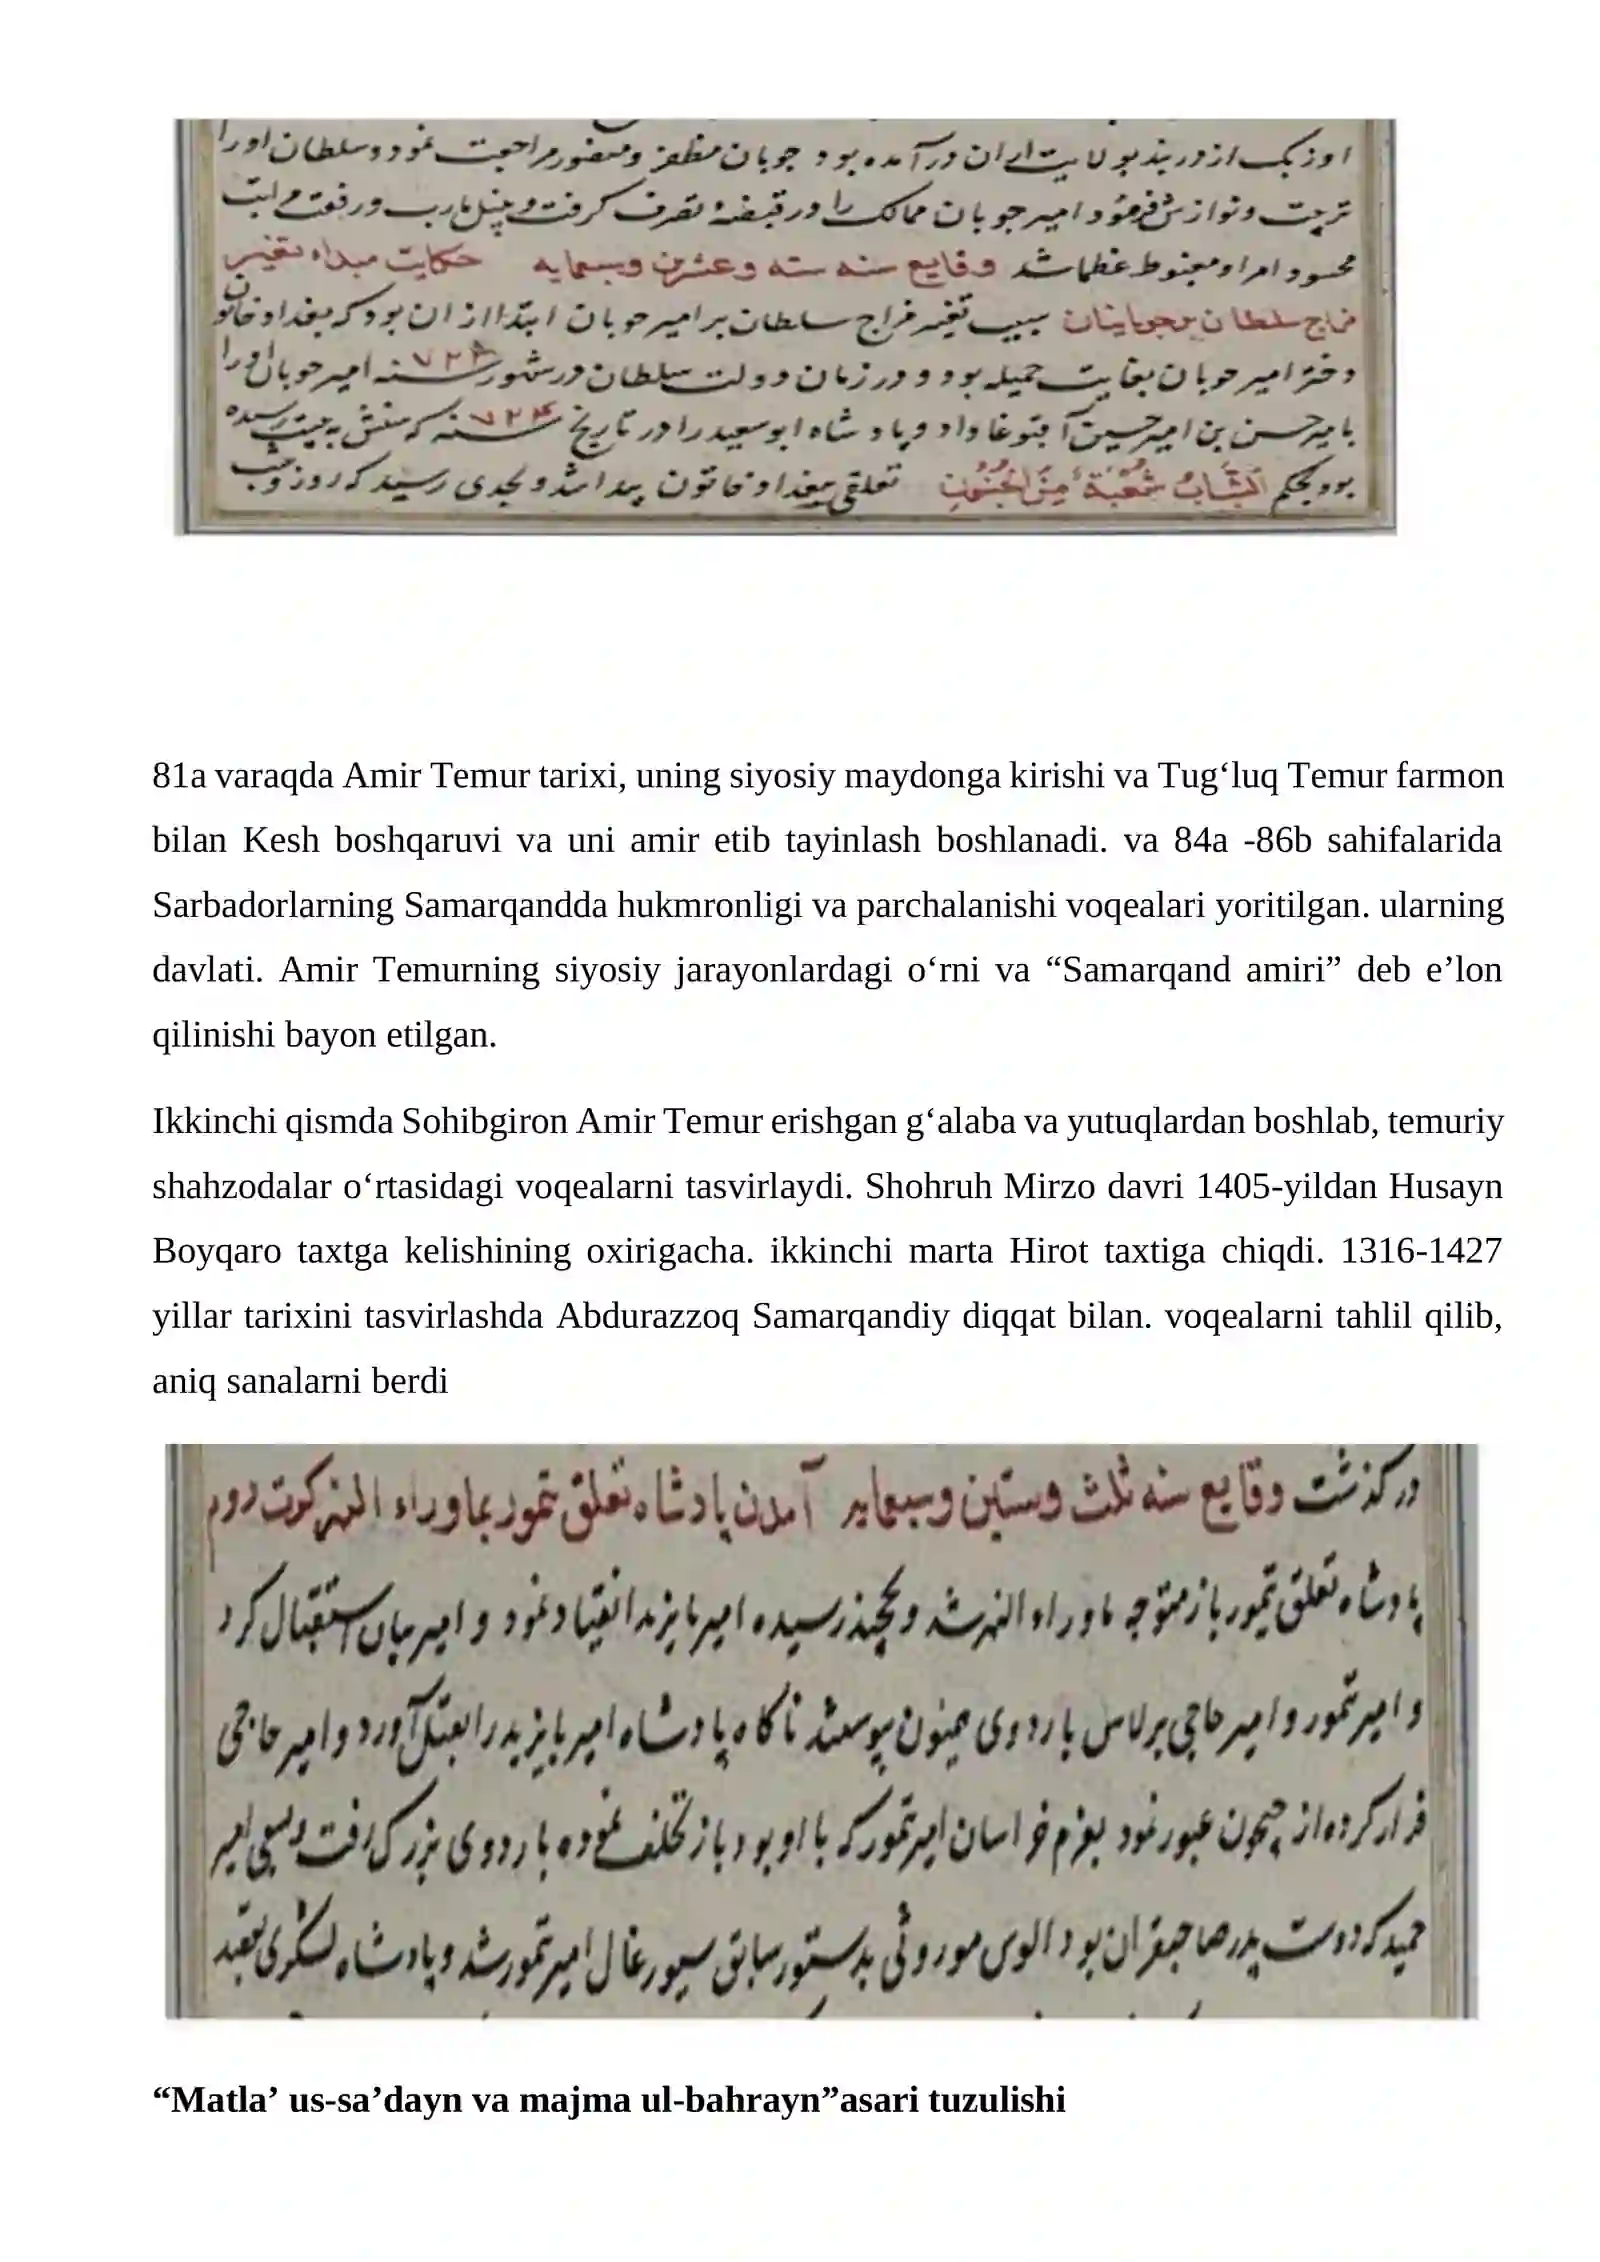 اوزبک از دربند بولایت ایران درآمده بود جوبان مظفر و منصور مراجعت نمود و سلطان اورا
تربیت و نوازش فرمود و امیر جوبان ممالک را در قبضهٔ تصرف گرفت و
محسود امرا و مغبوط عظما شد وقایع سنه سته و عشرین و سبعمایه حکایت مبداء تغییر
مزاج سلطان بر جوبانیان سبب تغیر مزاج سلطان بر امیر جوبان ابتدا از ان بود که بغداد خاتون
دختر امیر جوبان بغایت جمیله بود و در زمان دولت سلطان در شهور سنه امیر جوبان اورا
بامیر حسن بن امیر حسین آقبوغا داد و پادشاه ابوسعید را در تاریخ سنه که سنش به بیست رسیده
بود بحکم اَلشَّبَابُ شُعْبَةٌ مِنَ الْجُنُونِ تعلقی ببغداد خاتون پیدا شد و بحدی رسید که روز و شب
81a varaqda Amir Temur tarixi, uning siyosiy maydonga kirishi va Tug‘luq Temur farmon
bilan Kesh boshqaruvi va uni amir etib tayinlash boshlanadi. va 84a -86b sahifalarida
Sarbadorlarning Samarqandda hukmronligi va parchalanishi voqealari yoritilgan. ularning
davlati. Amir Temurning siyosiy jarayonlardagi o‘rni va “Samarqand amiri” deb e’lon
qilinishi bayon etilgan.
Ikkinchi qismda Sohibgiron Amir Temur erishgan g‘alaba va yutuqlardan boshlab, temuriy
shahzodalar o‘rtasidagi voqealarni tasvirlaydi. Shohruh Mirzo davri 1405-yildan Husayn
Boyqaro taxtga kelishining oxirigacha. ikkinchi marta Hirot taxtiga chiqdi. 1316-1427
yillar tarixini tasvirlashda Abdurazzoq Samarqandiy diqqat bilan. voqealarni tahlil qilib,
aniq sanalarni berdi
در گذشت وقایع سنه ثلث وستین وسبعمایه آمدن پادشاه تغلق تمور بماوراء النهر کرت دوم
پادشاه تغلق تیمور باز متوجه ماوراء النهر شد و بخجند رسیده امیر بایزید انقیاد نمود و امیر بیان استقبال کرد
و امیر تمور و امیر حاجی برلاس باردوی همیون پیوستند ناکاه پادشاه امیر بایزید را بقتل آورد و امیر حاجی
فرار کرده از جیحون عبور نمود بعزم خراسان امیر تمور که با او بود باز تخلف نموده باردوی بزرک رفت و بسعی امیر
حمید که دوست پدر صاحبقران بود الوس موروثی بدستور سابق سیورغال امیر تمور شد و پادشاه لشکری بقصد
“Matla’ us-sa’dayn va majma ul-bahrayn”asari tuzulishi